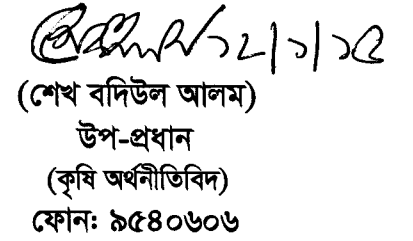 ১২/১/১৫
(শেখ বদিউল আলম)
উপ-প্রধান
(কৃষি অর্থনীতিবিদ)
ফোনঃ ৯৫৪০৬০৬